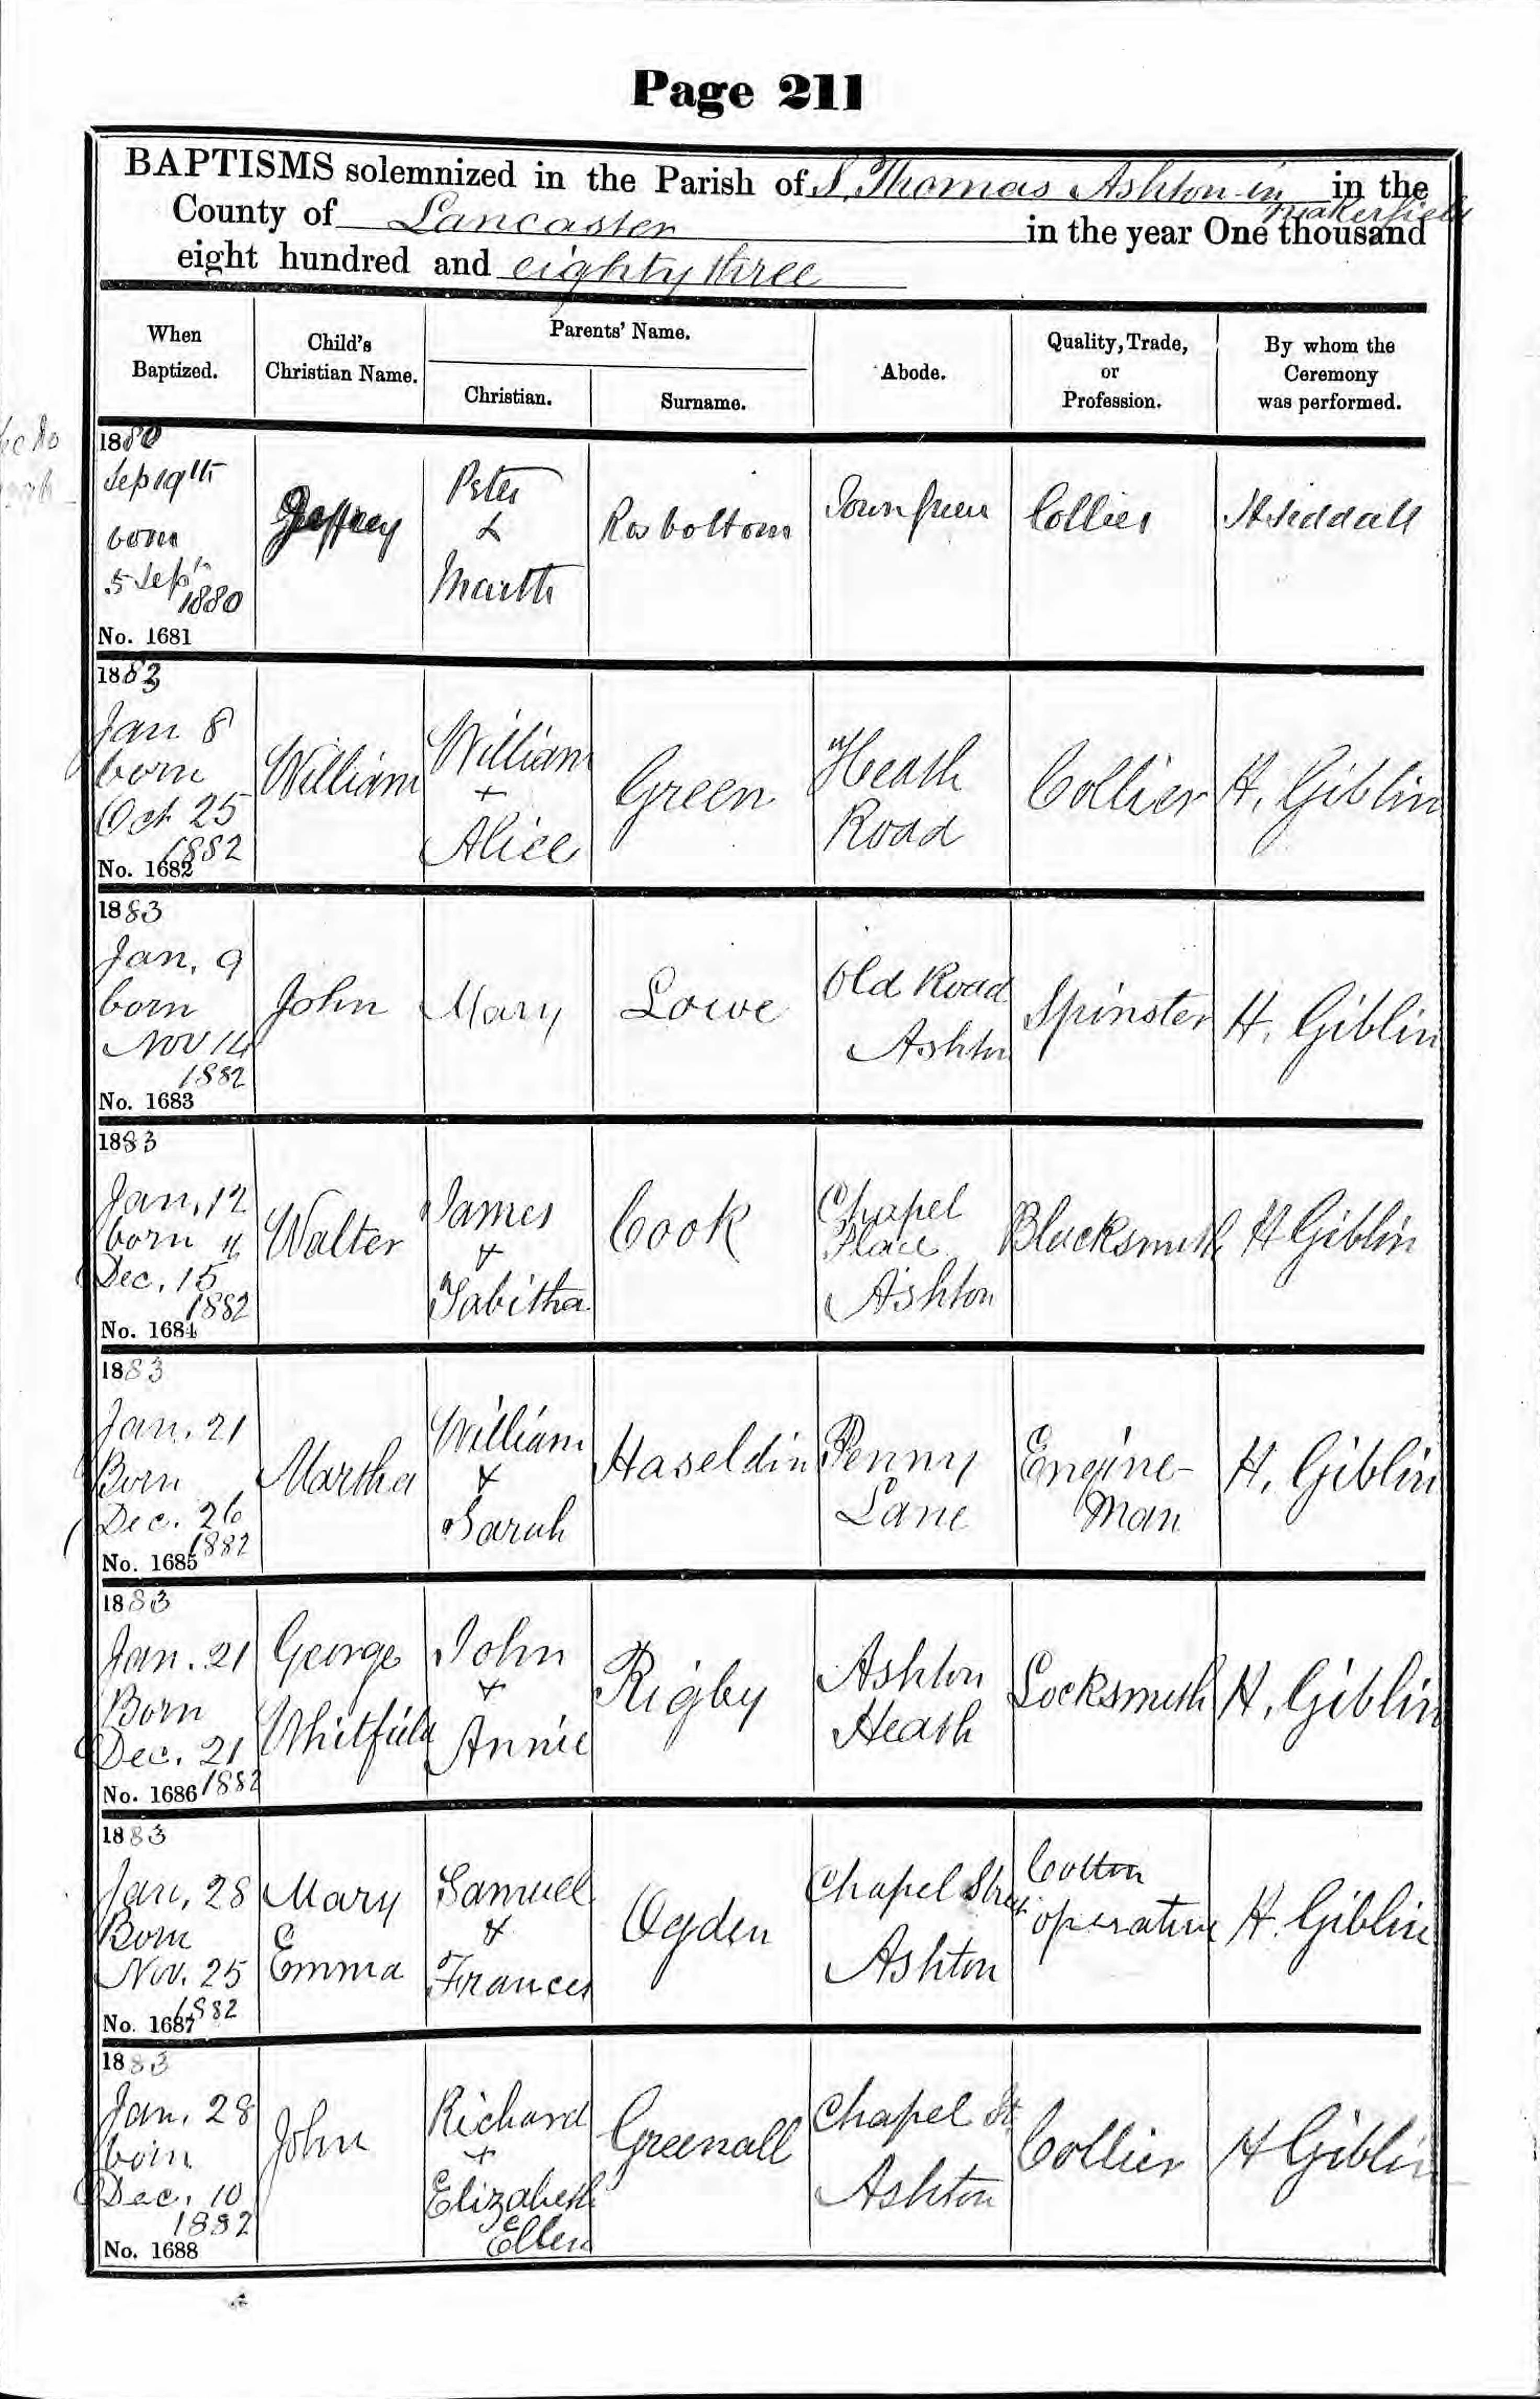 Page 211
BAPTISMS solemnized in the Parish of S. Thomas Ashton-in Makerfield in the
County of Lancaster in the year One thousand
eight hundred and eighty three
When Baptized.
Child's Christian Name.
Parents' Name.
Christian.
Surname.
Abode.
Quality, Trade, or Profession.
By whom the Ceremony was performed.
1880
Sep 19th
born
5 Sep
1880
No. 1681
Jeffrey
Peter
&
Martha
Rosbottom
Town Green
Collier
H Siddall
1883
Jan 8
born
Oct 25
1882
No. 1682
William
William
+
Alice
Green
Heath
Road
Collier
H. Giblin
1883
Jan. 9
born
Nov 14
1882
No. 1683
John
Mary
Lowe
Old Road
Ashton
Spinster
H. Giblin
1883
Jan. 12
born
Dec. 15
1882
No. 1684
Walter
James
+
Tabitha
Cook
Chapel
Place
Ashton
Blacksmith
H Giblin
1883
Jan. 21
Born
Dec. 26
1882
No. 1685
Martha
William
+
Sarah
Haseldin
Penny
Lane
Engine-
man
H. Giblin
1883
Jan. 21
Born
Dec. 21
1882
No. 1686
George
Whitfield
John
+
Annie
Rigby
Ashton
Heath
Locksmith
H. Giblin
1883
Jan, 28
Born
Nov. 25
1882
No. 1687
Mary
Emma
Samuel
+
Frances
Ogden
Chapel Street
Ashton
Cotton
operative
H. Giblin
1883
Jan. 28
born
Dec. 10
1882
No. 1688
John
Richard
+
Elizabeth
Ellen
Greenall
Chapel St
Ashton
Collier
H Giblin